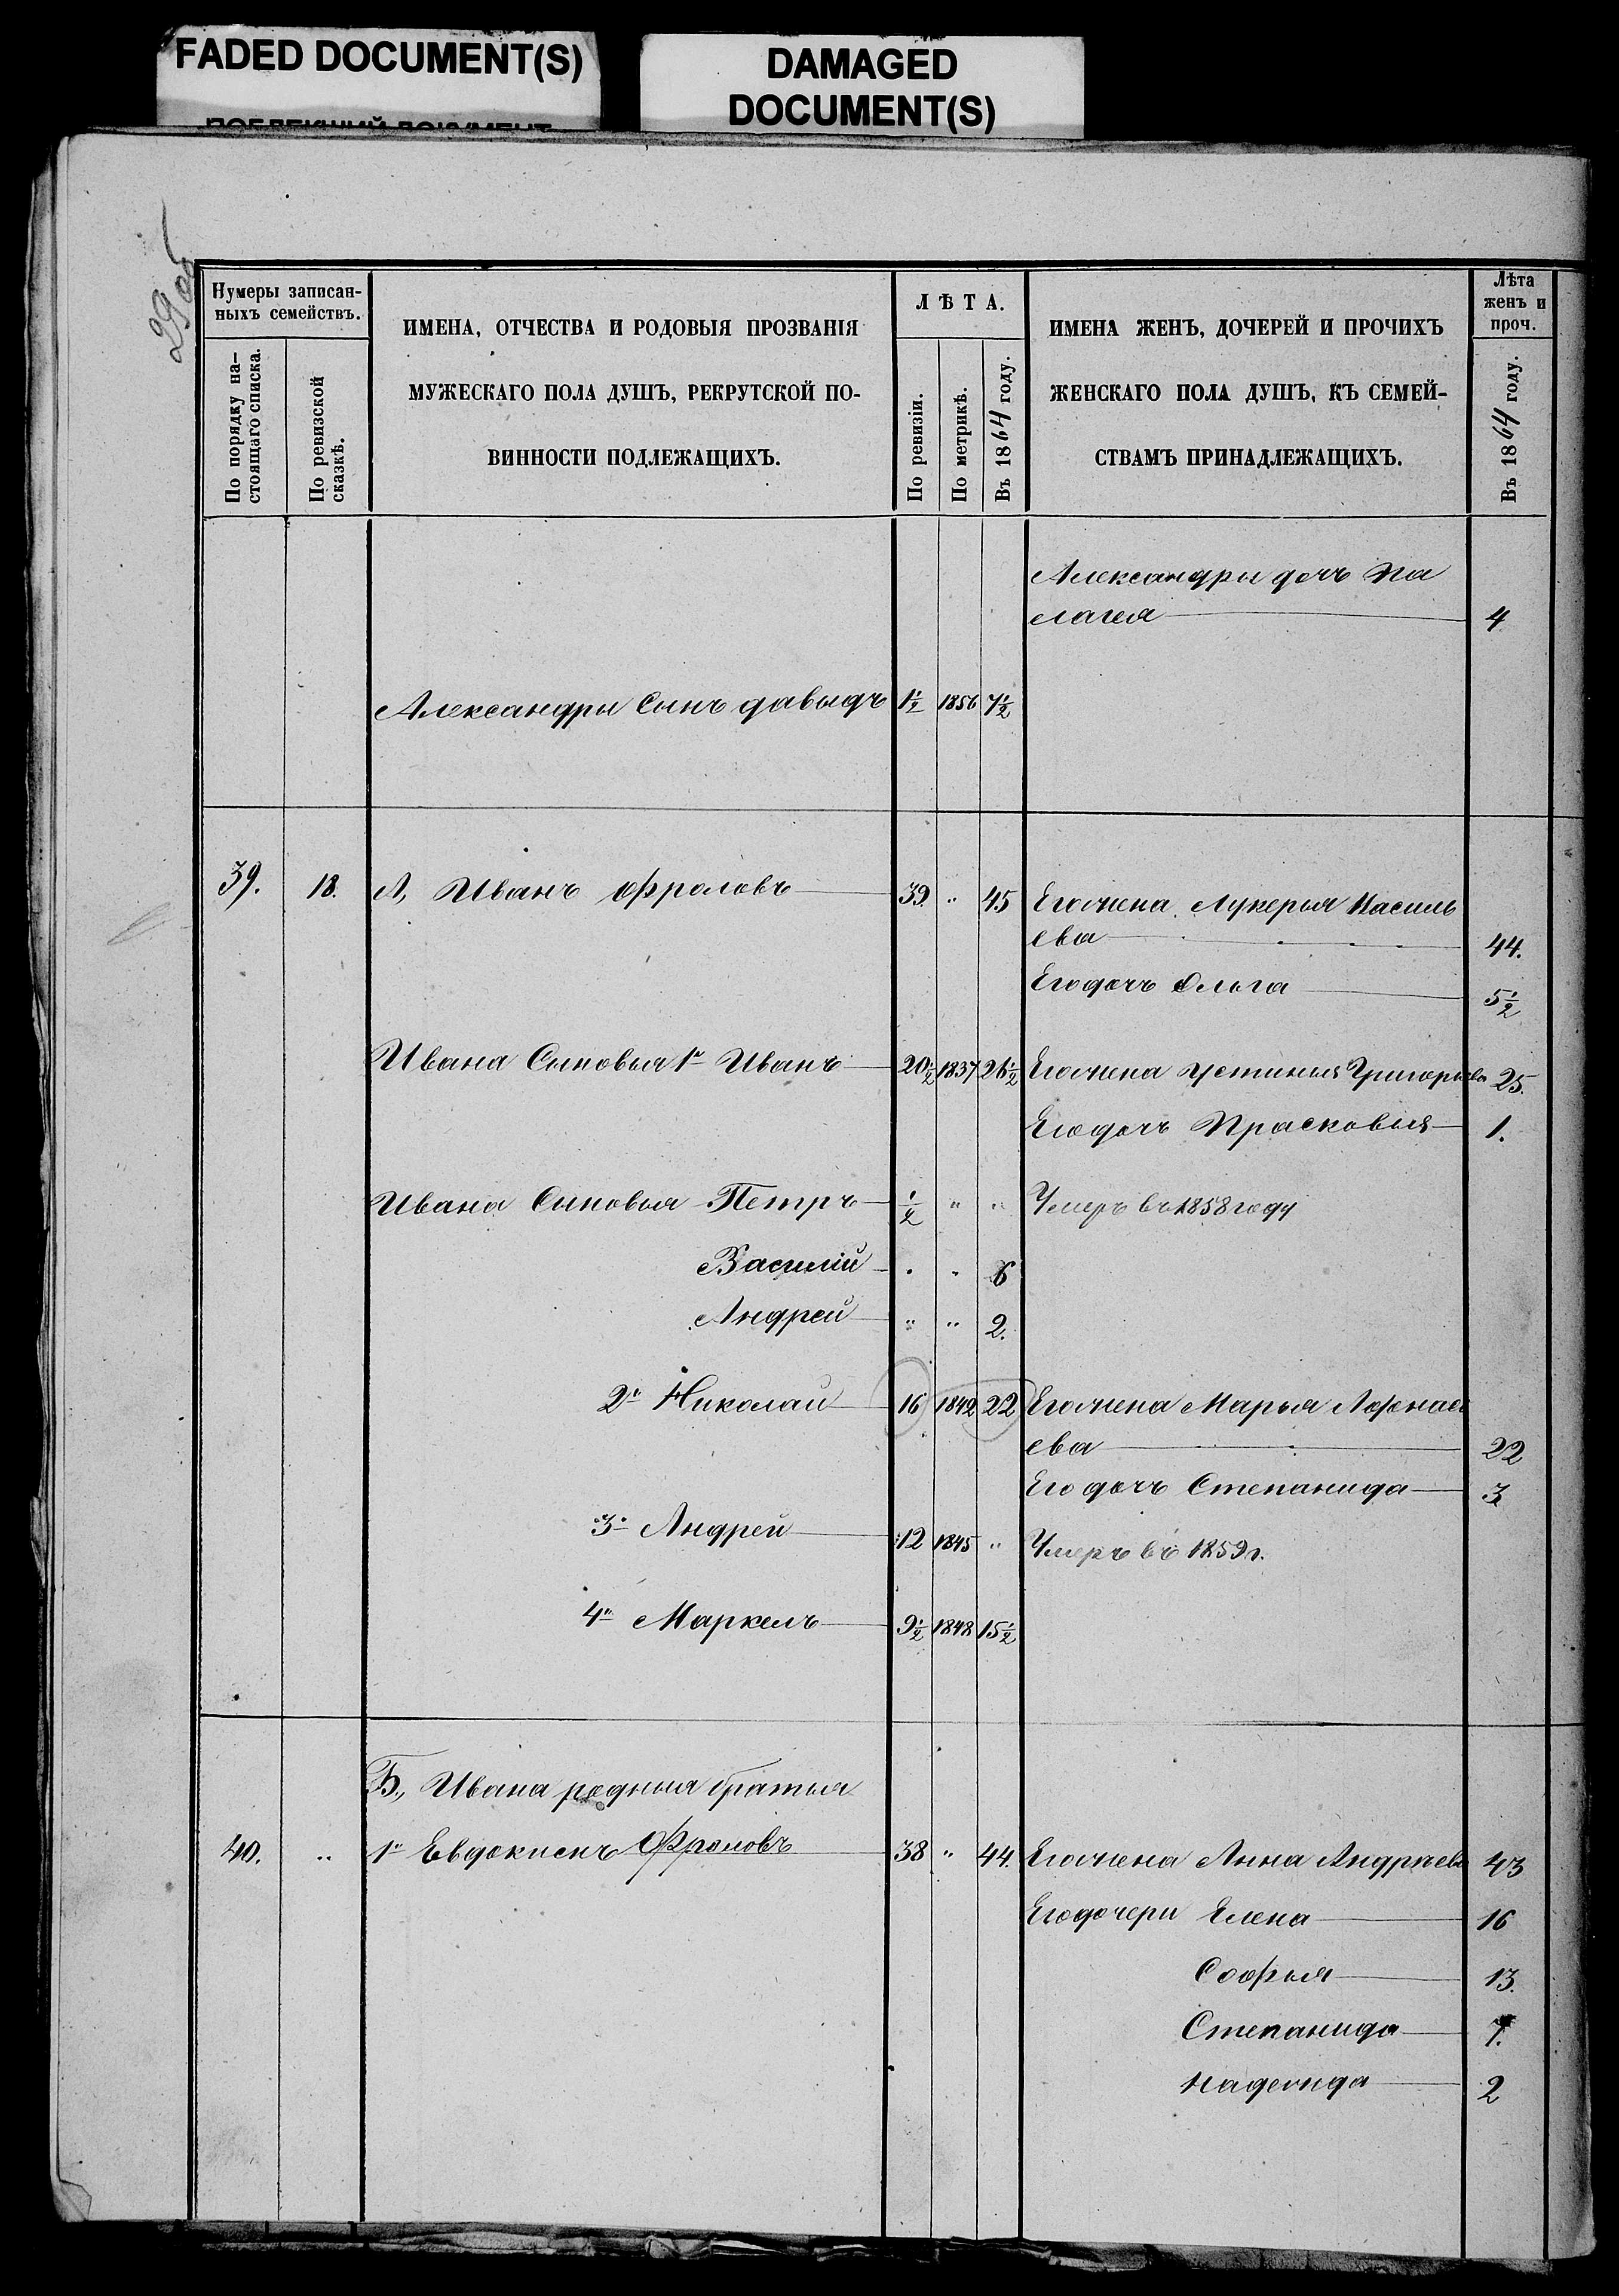 FADED DOCUMENT(S)
DAMAGED
DOCUMENT(S)
29 об
Нумеры записан-
ныхъ семействъ.
По порядку на-
стоящаго списка.
По ревизской
сказкѣ.
ИМЕНА, ОТЧЕСТВА И РОДОВЫЯ ПРОЗВАНІЯ
МУЖЕСКАГО ПОЛА ДУШЪ, РЕКРУТСКОЙ ПО-
ВИННОСТИ ПОДЛЕЖАЩИХЪ.
ЛѢТА.
По ревизіи.
По метрикѣ.
Въ 1864 году.
ИМЕНА ЖЕНЪ, ДОЧЕРЕЙ И ПРОЧИХЪ
ЖЕНСКАГО ПОЛА ДУШЪ, КЪ СЕМЕЙ-
СТВАМЪ ПРИНАДЛЕЖАЩИХЪ.
Лѣта
женъ и
проч.
Въ 1864 году.
Александры дочь Па
лагея 4
Александры Сынъ давыдъ 1½ 1856 7½
39. 18. А, Иванъ Фроловъ 39. " 45 Его жена Лукерья Василь
ева 44.
Его дочь Ольга 5½
Ивана Сыновья 1й Иванъ 20½ 1837 26½ Его жена Устинья Григорьева 25.
Его дочь Прасковья 1.
Ивана Сыновья Петръ ½ " " Умеръ въ 1858 году
Василій " " 6
Андрей " " 2.
2й Николай 16 1842 22 Его жена Марья Афонась
ева 22
Его дочь Степанида 3
3й Андрей 12 1845 " Умеръ въ 1859 г.
4й Маркелъ 9½ 1848 15½
Б., Ивана родныя братья
40. " 1й Евдокимъ Фроловъ 38 " 44. Его жена Анна Андрѣева 43
Его дочери Елена 16
Софья 13.
Степанида 7.
Надежда 2